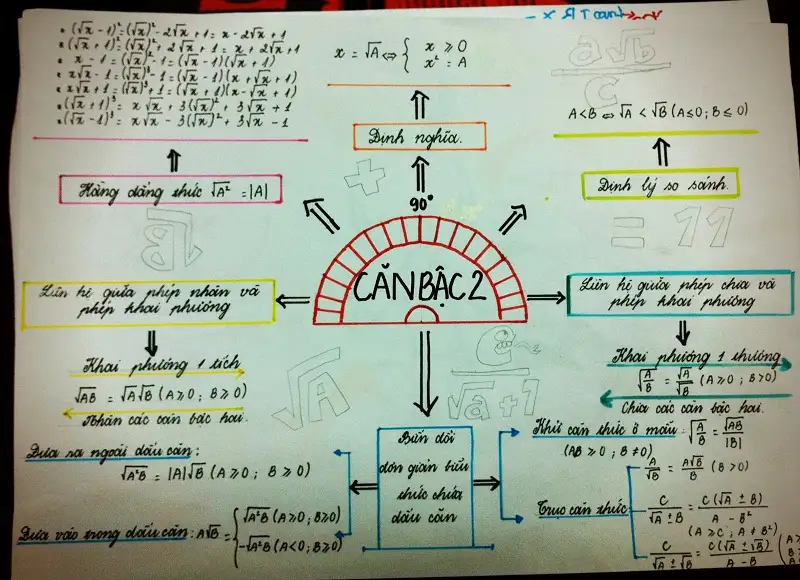 * (√x - 1)² = (√x)² - 2√x + 1 = x - 2√x + 1
* (√x + 1)² = (√x)² + 2√x + 1 = x + 2√x + 1
* x - 1 = (√x)² - 1 = (√x - 1)(√x + 1)
* x√x - 1 = (√x)³ - 1 = (√x - 1)(x + √x + 1)
* x√x + 1 = (√x)³ + 1 = (√x + 1)(x - √x + 1)
* (√x + 1)³ = x√x + 3(√x)² + 3√x + 1
* (√x - 1)³ = x√x - 3(√x)² + 3√x - 1
Hằng đẳng thức √A² = |A|
x = √A ⇔ { x ≥ 0
x² = A
Định nghĩa.
90°
a√b
C
A < B ⇔ √A < √B (A ≤ 0; B ≤ 0)
Định lý so sánh.
= 11
+
√B
CĂN BẬC 2
Liên hệ giữa phép nhân và
phép khai phương
Khai phương 1 tích
√AB = √A√B (A ≥ 0; B ≥ 0)
Nhân các căn bậc hai.
Liên hệ giữa phép chia và
phép khai phương
Khai phương 1 thương
√A/B = √A/√B (A ≥ 0; B > 0)
Chia các căn bậc hai.
√A
C
√a + 1
Biến đổi
đơn giản biểu
thức chứa
dấu căn
Đưa ra ngoài dấu căn:
√A²B = |A|√B (A ≥ 0; B ≥ 0)
Đưa vào trong dấu căn: A√B = { √A²B (A ≥ 0; B ≥ 0)
-√A²B (A < 0; B ≥ 0)
Khử căn thức ở mẫu √A/B = √AB/|B|
(AB ≥ 0; B ≠ 0)
A/√B = A√B/B (B > 0)
Trục căn thức
C/√A ± B = C(√A ± B)/A - B²
(A ≥ C; A ≠ B²)
C/√A ± √B = C(√A ± √B)/A - B